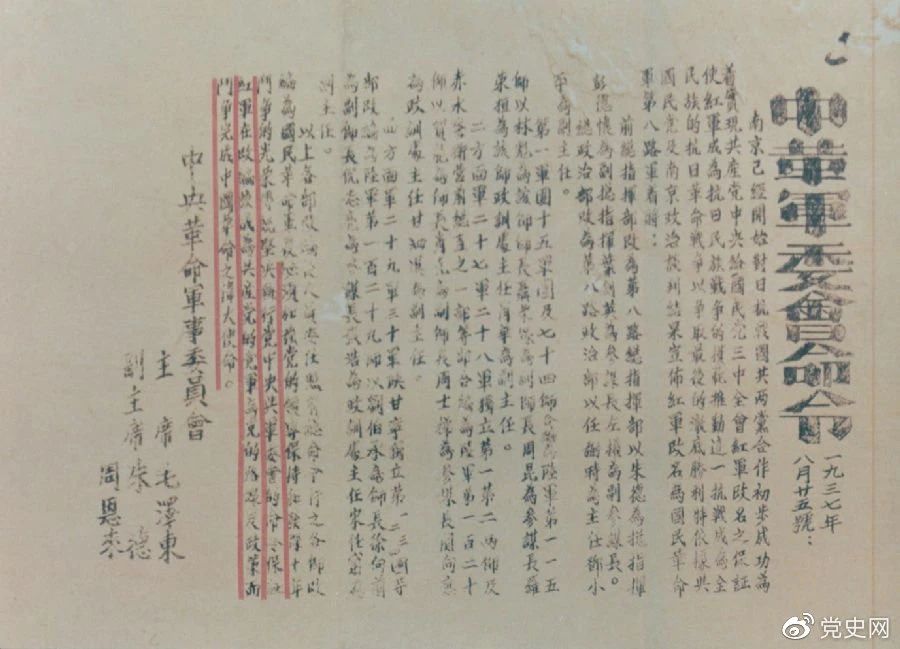 中革軍委會命令
一九三七年
八月廿五號：
南京已經開始對日抗戰國共兩黨合作初步成功為
着實現共產党中央給國民党三中全會紅軍改名之保証
使紅軍成為抗日民族戰争的模范推動這一抗戰成為全
民族的抗日革命戰争以争取最後的澈底勝利特依據共
國民党及南京政治談判結果宣佈紅軍改名為國民革命
軍第八路軍着開：
前總指揮部改為第八路總指揮部以朱德為總指揮
彭德懷為副總指揮葉劍英為參謀長左權為副參謀長。
總政治部改為第八路政治部以任弼時為主任鄧小
平為副主任。
第一軍團十五軍團及七十四師合編為陸軍第一一五
師以林彪為該師師長聶榮臻為副師長周昆為參謀長羅
榮桓為該師政訓處主任蕭華為副主任。
二方面軍二十七軍二十八軍獨立第一第二兩師及
赤水警衛營前總直之一部等部合編為陸軍第一百二十
師以賀龍為師長蕭克為副師長周士第為參謀長關向應
為政訓處主任甘泗淇為副主任。
四方面軍二十九軍三十軍陝甘寧獨立第一二三四團等
部改編為陸軍第一百二十九師以劉伯承為師長徐向前
為副師長倪志亮為參謀長張浩為政訓處主任宋任窮為
副主任。
以上各部改編後人員委任照前總命令行之各部改
編為國民革命軍後必須加強党的領導保持和發揮十年
鬥争的光榮傳統堅決執行党中央與軍委會的命令保証
紅軍在改編後成為共產党的党軍為党的路線及政策而
鬥争完成中國革命之偉大使命。
中央革命軍事委員會
主席毛澤東
副主席朱德
周恩來
党史网